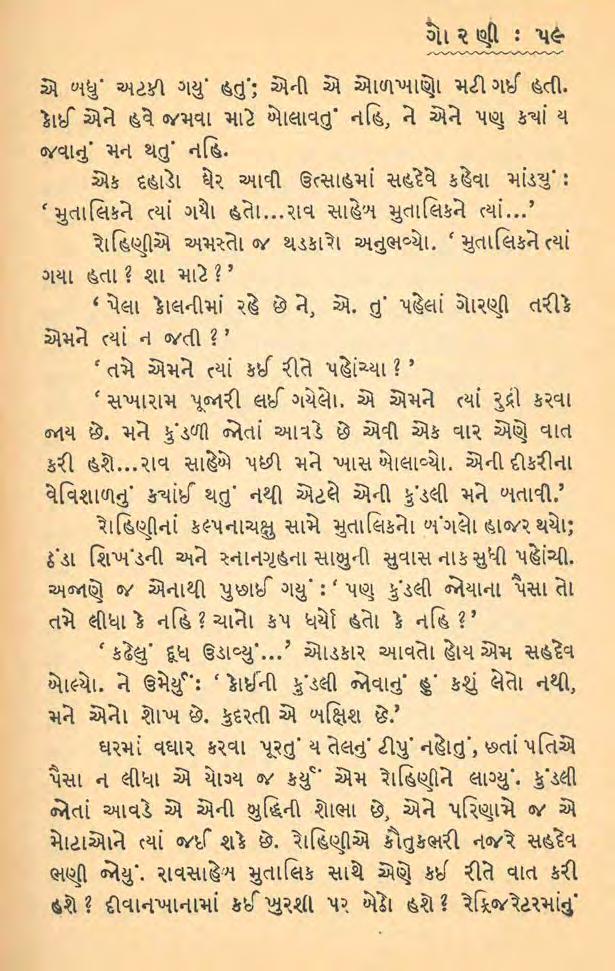 ગોરણી : ૫૯
એ બધું અટકી ગયું હતું; એની એ ઓળખાણો મટી ગઈ હતી.
કોઈ એને હવે જમવા માટે બોલાવતું નહિ, ને એને પણ ક્યાં ય
જવાનું મન થતું નહિ.
એક દહાડો ઘેર આવી ઉત્સાહમાં સહદેવે કહેવા માંડ્યું :
‘મુતાલિકને ત્યાં ગયો હતો...રાવ સાહેબ મુતાલિકને ત્યાં...’
રોહિણીએ અમસ્તો જ થડકારો અનુભવ્યો. ‘મુતાલિકને ત્યાં
ગયા હતા ? શા માટે ?’
‘પેલા કોલનીમાં રહે છે ને, એ. તું પહેલાં ગોરણી તરીકે
એમને ત્યાં ન જતી ?’
‘તમે એમને ત્યાં કઈ રીતે પહોંચ્યા ?’
‘સખારામ પૂજારી લઈ ગયેલો. એ એમને ત્યાં રુદ્રી કરવા
જાય છે. મને કુંડળી જોતાં આવડે છે એવી એક વાર એણે વાત
કરી હશે...રાવ સાહેબે પછી મને ખાસ બોલાવ્યો. એની દીકરીના
વેવિશાળનું ક્યાંઈ થતું નથી એટલે એની કુંડલી મને બતાવી.’
રોહિણીનાં કલ્પનાચક્ષુ સામે મુતાલિકનો બંગલો હાજર થયો;
ઠંડા શિખંડની અને સ્નાનગૃહના સાબુની સુવાસ નાક સુધી પહોંચી.
અજાણે જ એનાથી પુછાઈ ગયું : ‘પણ કુંડલી જોયાના પૈસા તો
તમે લીધા કે નહિ ? ચાનો કપ ધર્યો હતો કે નહિ ?’
‘કઢેલું દૂધ ઉડાવ્યું...’ ઓડકાર આવતો હોય એમ સહદેવ
બોલ્યો. ને ઉમેર્યું : ‘કોઈની કુંડલી જોવાનું હું કશું લેતો નથી,
મને એનો શોખ છે. કુદરતી એ બક્ષિશ છે.’
ઘરમાં વઘાર કરવા પૂરતું ય તેલનું ટીપું નહોતું, છતાં પતિએ
પૈસા ન લીધા એ યોગ્ય જ કર્યું એમ રોહિણીને લાગ્યું. કુંડલી
જોતાં આવડે એ એની બુદ્ધિની શોભા છે, એને પરિણામે જ એ
મોટાઓને ત્યાં જઈ શકે છે. રોહિણીએ કૌતુકભરી નજરે સહદેવ
ભણી જોયું. રાવસાહેબ મુતાલિક સાથે એણે કઈ રીતે વાત કરી
હશે ? દીવાનખાનામાં કઈ ખુરશી પર બેઠો હશે ? રેફ્રિજરેટરમાંનું